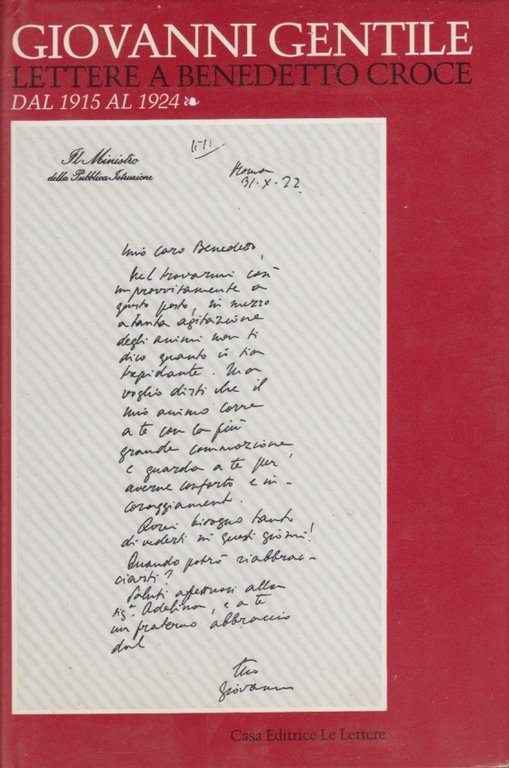 GIOVANNI GENTILE
LETTERE A BENEDETTO CROCE
DAL 1915 AL 1924
Il Ministro
della Pubblica Istruzione
Roma
31·X·22
Mio caro Benedetto,
Nel trovarmi così
improvvisamente a
questo posto, in mezzo
a tanta agitazione
degli animi non ti
dico quanto io sia
trepidante. Ma
voglio dirti che il
mio animo corre
a te con la più
grande commozione
e guarda a te per
averne conforto e in-
coraggiamento.
Avrei bisogno tanto
di vederti in questi giorni!
Quando potrò riabbrac-
ciarti?
Saluti affettuosi alla
sigª. Adelina, e a te
un fraterno abbraccio
dal
tuo
Giovanni
Casa Editrice Le Lettere